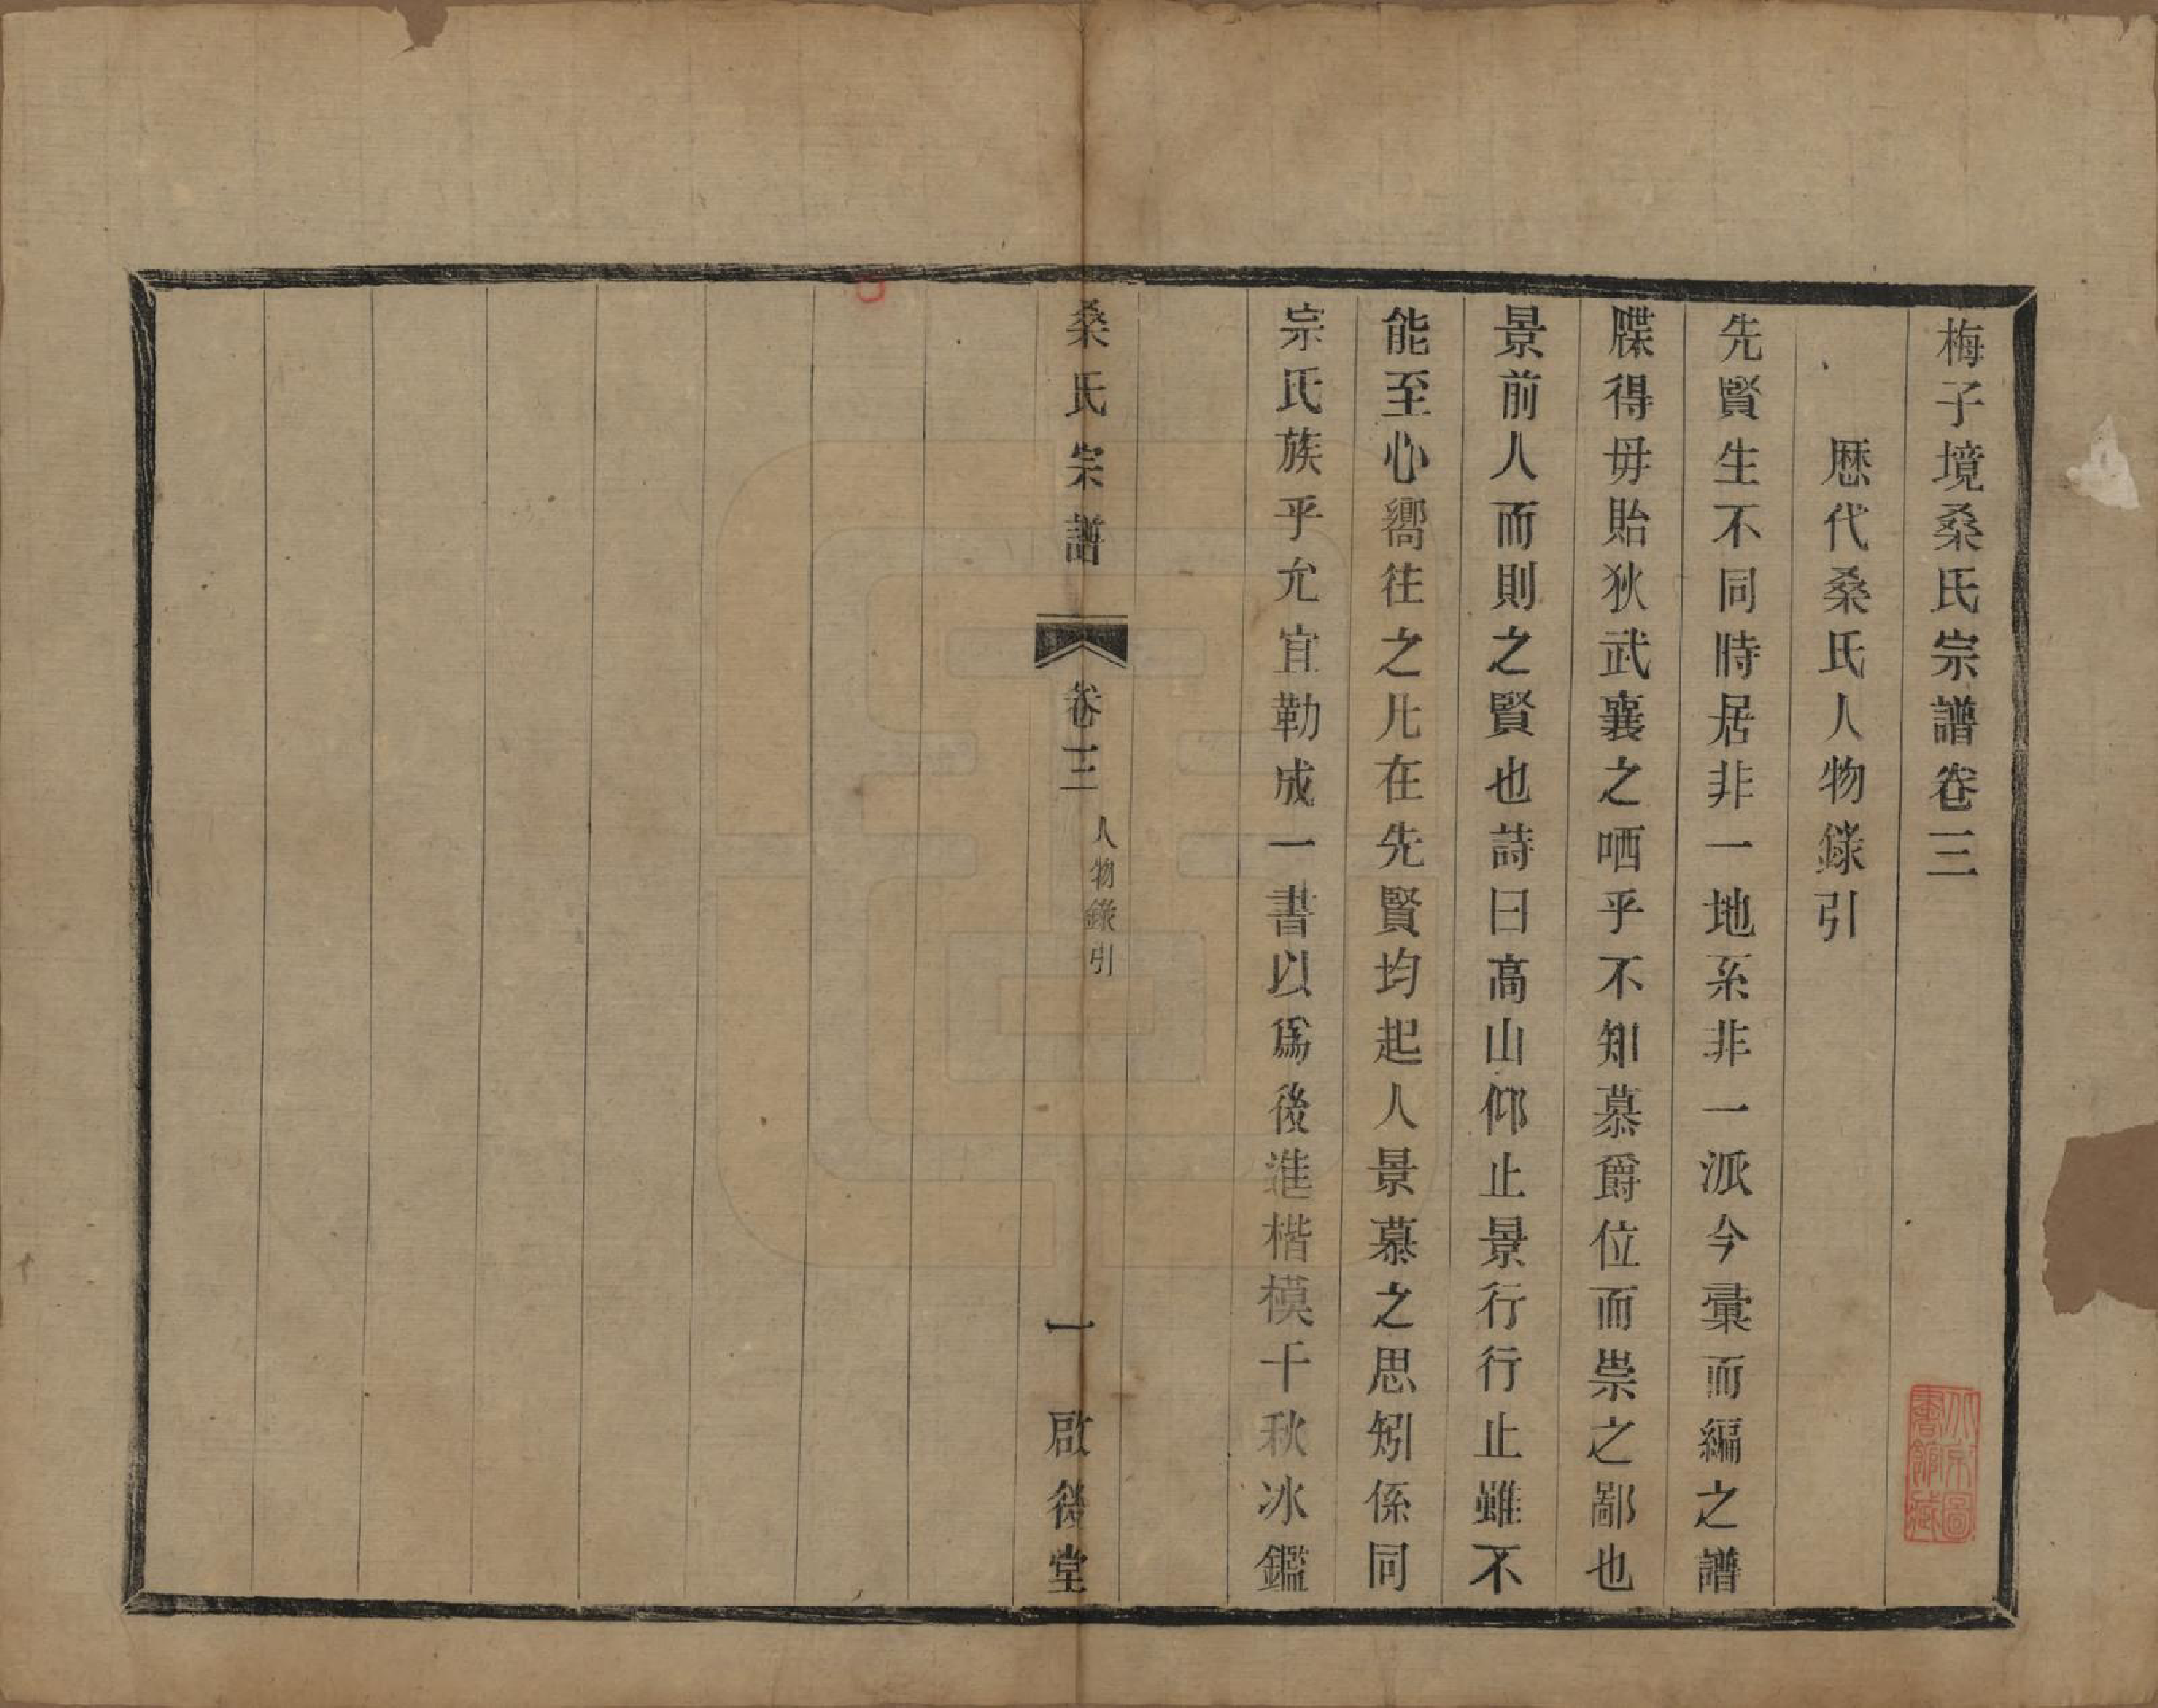 梅子境桑氏宗譜卷三
歷代桑氏人物錄引
先賢生不同時居非一地系非一派今彙而編之譜
牒得毋貽狄武襄之哂乎不知慕爵位而祟之鄙也
景前人而則之賢也詩曰高山仰止景行行止雖不
能至心嚮往之凡在先賢均起人景慕之思矧係同
宗氏族乎允宜勒成一書以爲後進楷模千秋冰鑑
桑氏宗譜
卷三
人物錄引
一
啟後堂
北京圖
書館藏